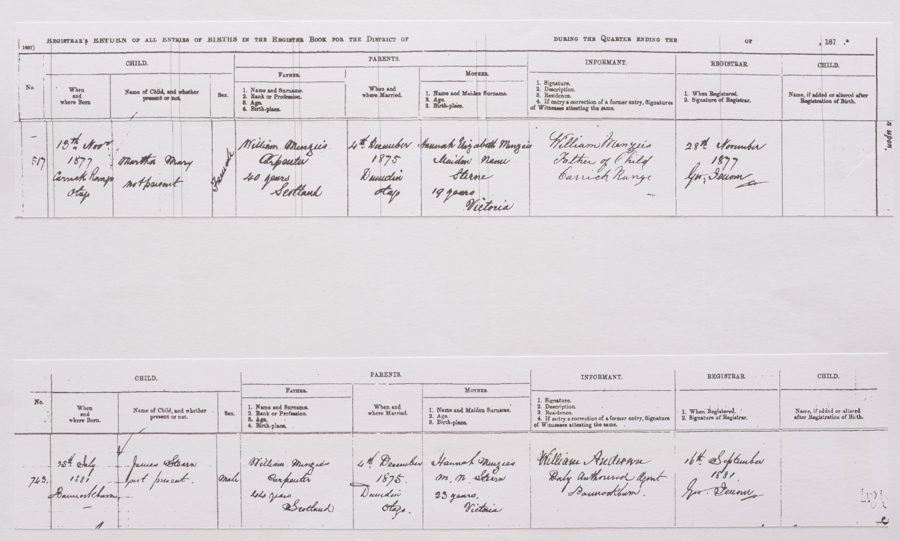 1887]
REGISTRAR'S RETURN OF ALL ENTRIES OF BIRTHS IN THE REGISTER BOOK FOR THE DISTRICT OF DURING THE QUARTER ENDING THE OF , 187 .
CHILD. PARENTS. INFORMANT. REGISTRAR. CHILD.
No.
When and where Born
Name of Child, and whether present or not.
Sex.
FATHER.
1. Name and Surname.
2. Rank or Profession.
3. Age.
4. Birth-place.
When and where Married.
MOTHER.
1. Name and Maiden Surname.
2. Age.
3. Birth-place.
1. Signature.
2. Description.
3. Residence.
4. If entry a correction of a former entry, Signatures of Witnesses attesting the same.
1. When Registered.
2. Signature of Registrar.
Name, if added or altered after Registration of Birth.
n upon.
517
13th Novr.
1877
Carrick Range
Otago
Martha Mary
not present
Female
William Menzies
Carpenter
40 years
Scotland
4th December
1875
Dunedin
Otago
Hannah Elizabeth Menzies
Maiden Name
Sterne
19 years
Victoria
William Menzies
Father of Child
Carrick Range
28th November
1877
CHILD. PARENTS. INFORMANT. REGISTRAR. CHILD.
No.
When and where Born.
Name of Child, and whether present or not.
Sex.
FATHER.
1. Name and Surname.
2. Rank or Profession.
3. Age.
4. Birth-place.
When and where Married.
MOTHER.
1. Name and Maiden Surname.
2. Age.
3. Birth-place.
1. Signature.
2. Description.
3. Residence.
4. If entry a correction of a former entry, Signature of Witnesses attesting the same.
1. When Registered.
2. Signature of Registrar.
Name, if added or altered after Registration of Birth.
743.
July
1881
Bannockburn
James Stern
not present.
Male
William Menzies
Carpenter
44 years
Scotland
4th December
1875.
Dunedin
Otago.
Hannah Menzies
M. N. Stern
23 years.
Victoria
William Anderson
Duly Authorised Agent
Bannockburn.
16th September
1881.